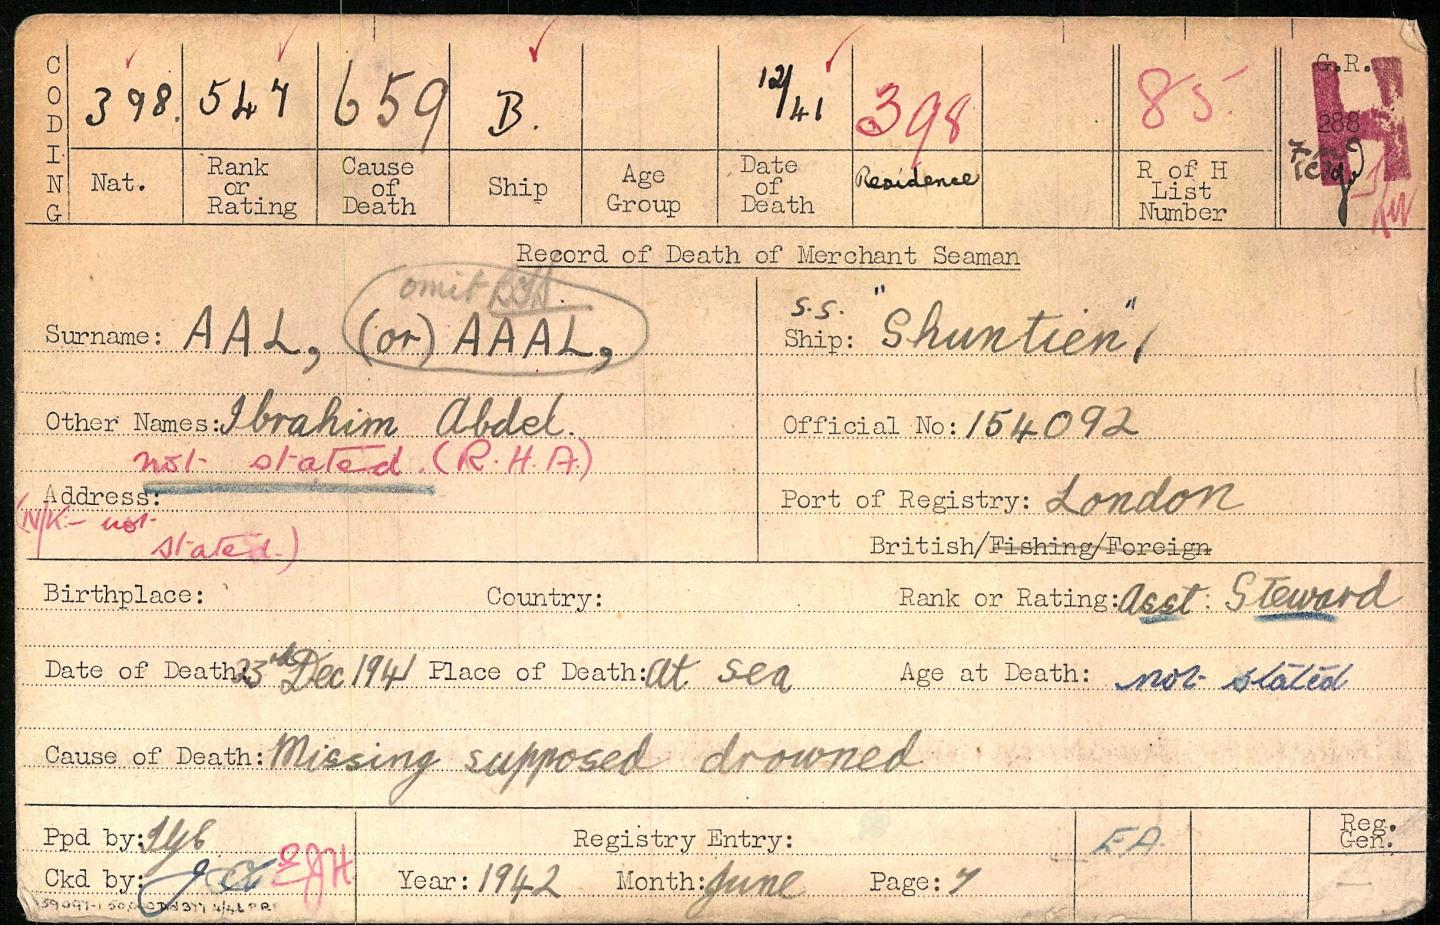 CODING
398. 547 659 B. 12/41 398 85. G.R.
288
Nat. Rank or Rating Cause of Death Ship Age Group Date of Death Residence R of H List Number
Record of Death of Merchant Seaman
omit
Surname: AAL, (or) AAAL,
s.s.
Ship: "Shuntien",
Other Names: Ibrahim Abdel.
Official No: 154092
not stated. (R.H.A.)
Address:
(N/K - not stated.)
Port of Registry: London
British/Fishing/Foreign
Birthplace: Country: Rank or Rating: Asst: Steward
Date of Death: 23rd Dec 1941 Place of Death: At sea Age at Death: not stated
Cause of Death: Missing supposed drowned
Ppd by: Registry Entry: EA Reg. Gen.
Ckd by: EJH Year: 1942 Month: June Page: 7